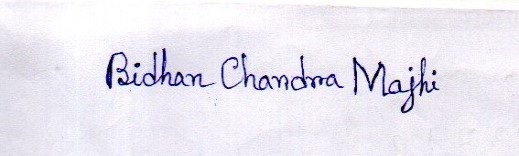 Bidhan Chandra Majhi